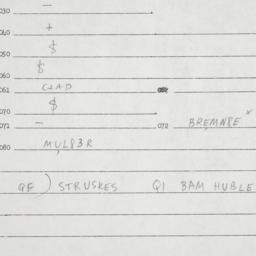 030 –
040 +
050 $
060 $
061 CZAD
070 $
071 – 072 BREMN8E x
080 MUL83R
QF) STRUSKES Q1 BAM HUBLE